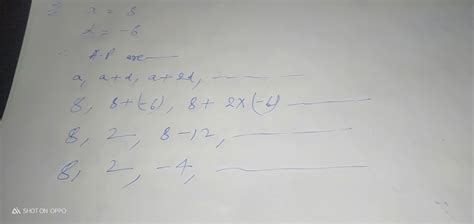 x = 8
d = -6
∴ A.P are —
a, a+d, a+2d, —
8, 8+(-6), 8+ 2x(-6) —
8, 2, 8-12, —
8, 2, -4, —
SHOT ON OPPO